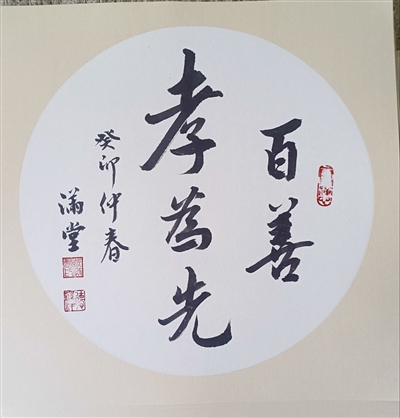 百善
孝為先
癸卯仲春
滿堂